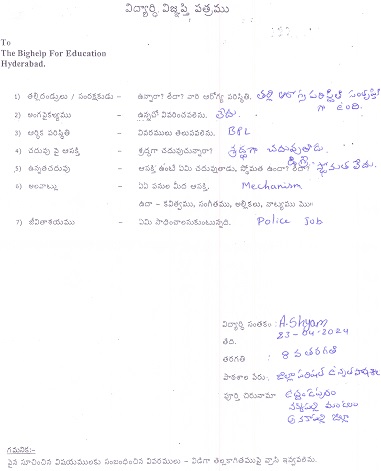 విద్యార్ధి విజ్ఞప్తి పత్రము
To
The Bighelp For Education
Hyderabad.
1) తల్లిదండ్రులు / సంరక్షకుడు – ఉన్నారా? లేదా? వారి ఆరోగ్య పరిస్థితి. తల్లి ఆరోగ్య పరిస్థితి
గా ఉంది.
2) అంగవైకల్యము – ఉన్నచో వివరించవలెను. లేదు.
3) ఆర్థిక పరిస్థితి – వివరములు తెలుపవలెను. BPL
4) చదువు పై ఆసక్తి – శ్రద్ధగా చదువుచున్నారా? శ్రద్ధగా చదువుతాడు.
5) ఉన్నతచదువు – ఆసక్తి ఉంటే ఏమి చదువుతాడు, స్తోమత ఉందా? లేదా? డిగ్రీ స్తోమత లేదు.
6) అలవాట్లు – ఏఏ పనుల మీద ఆసక్తి. Mechanism
ఉదా – కవిత్వము, సంగీతము, అల్లికలు, నాట్యము మొ॥
7) జీవితాశయము – ఏమి సాధించాలనుకుంటున్నది. Police Job
విద్యార్ధి సంతకం : A.Shyam
తేది. 23-04-2024
తరగతి : 8 వ తరగతి
పాఠశాల పేరు : జిల్లా పరిషత్ ఉన్నత పాఠశాల
పూర్తి చిరునామా :
మండలం
అనకాపల్లి జిల్లా
గమనిక:-
పైన సూచించిన విషయములకు సంబంధించిన వివరములు – విడిగా తెల్లకాగితముపై వ్రాసి ఇవ్వవలెను.